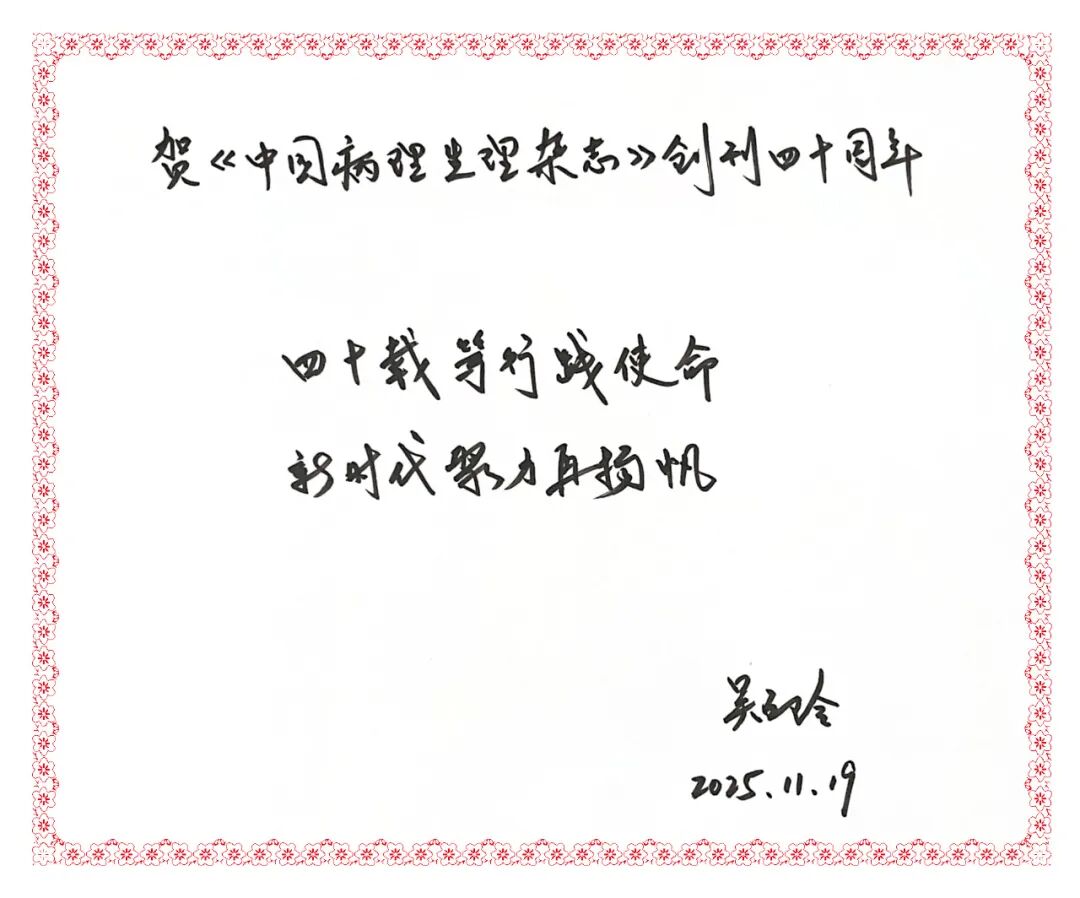 贺《中国病理生理杂志》创刊四十周年
四十载笃行践使命
新时代聚力再扬帆
吴立玲
2025.11.19